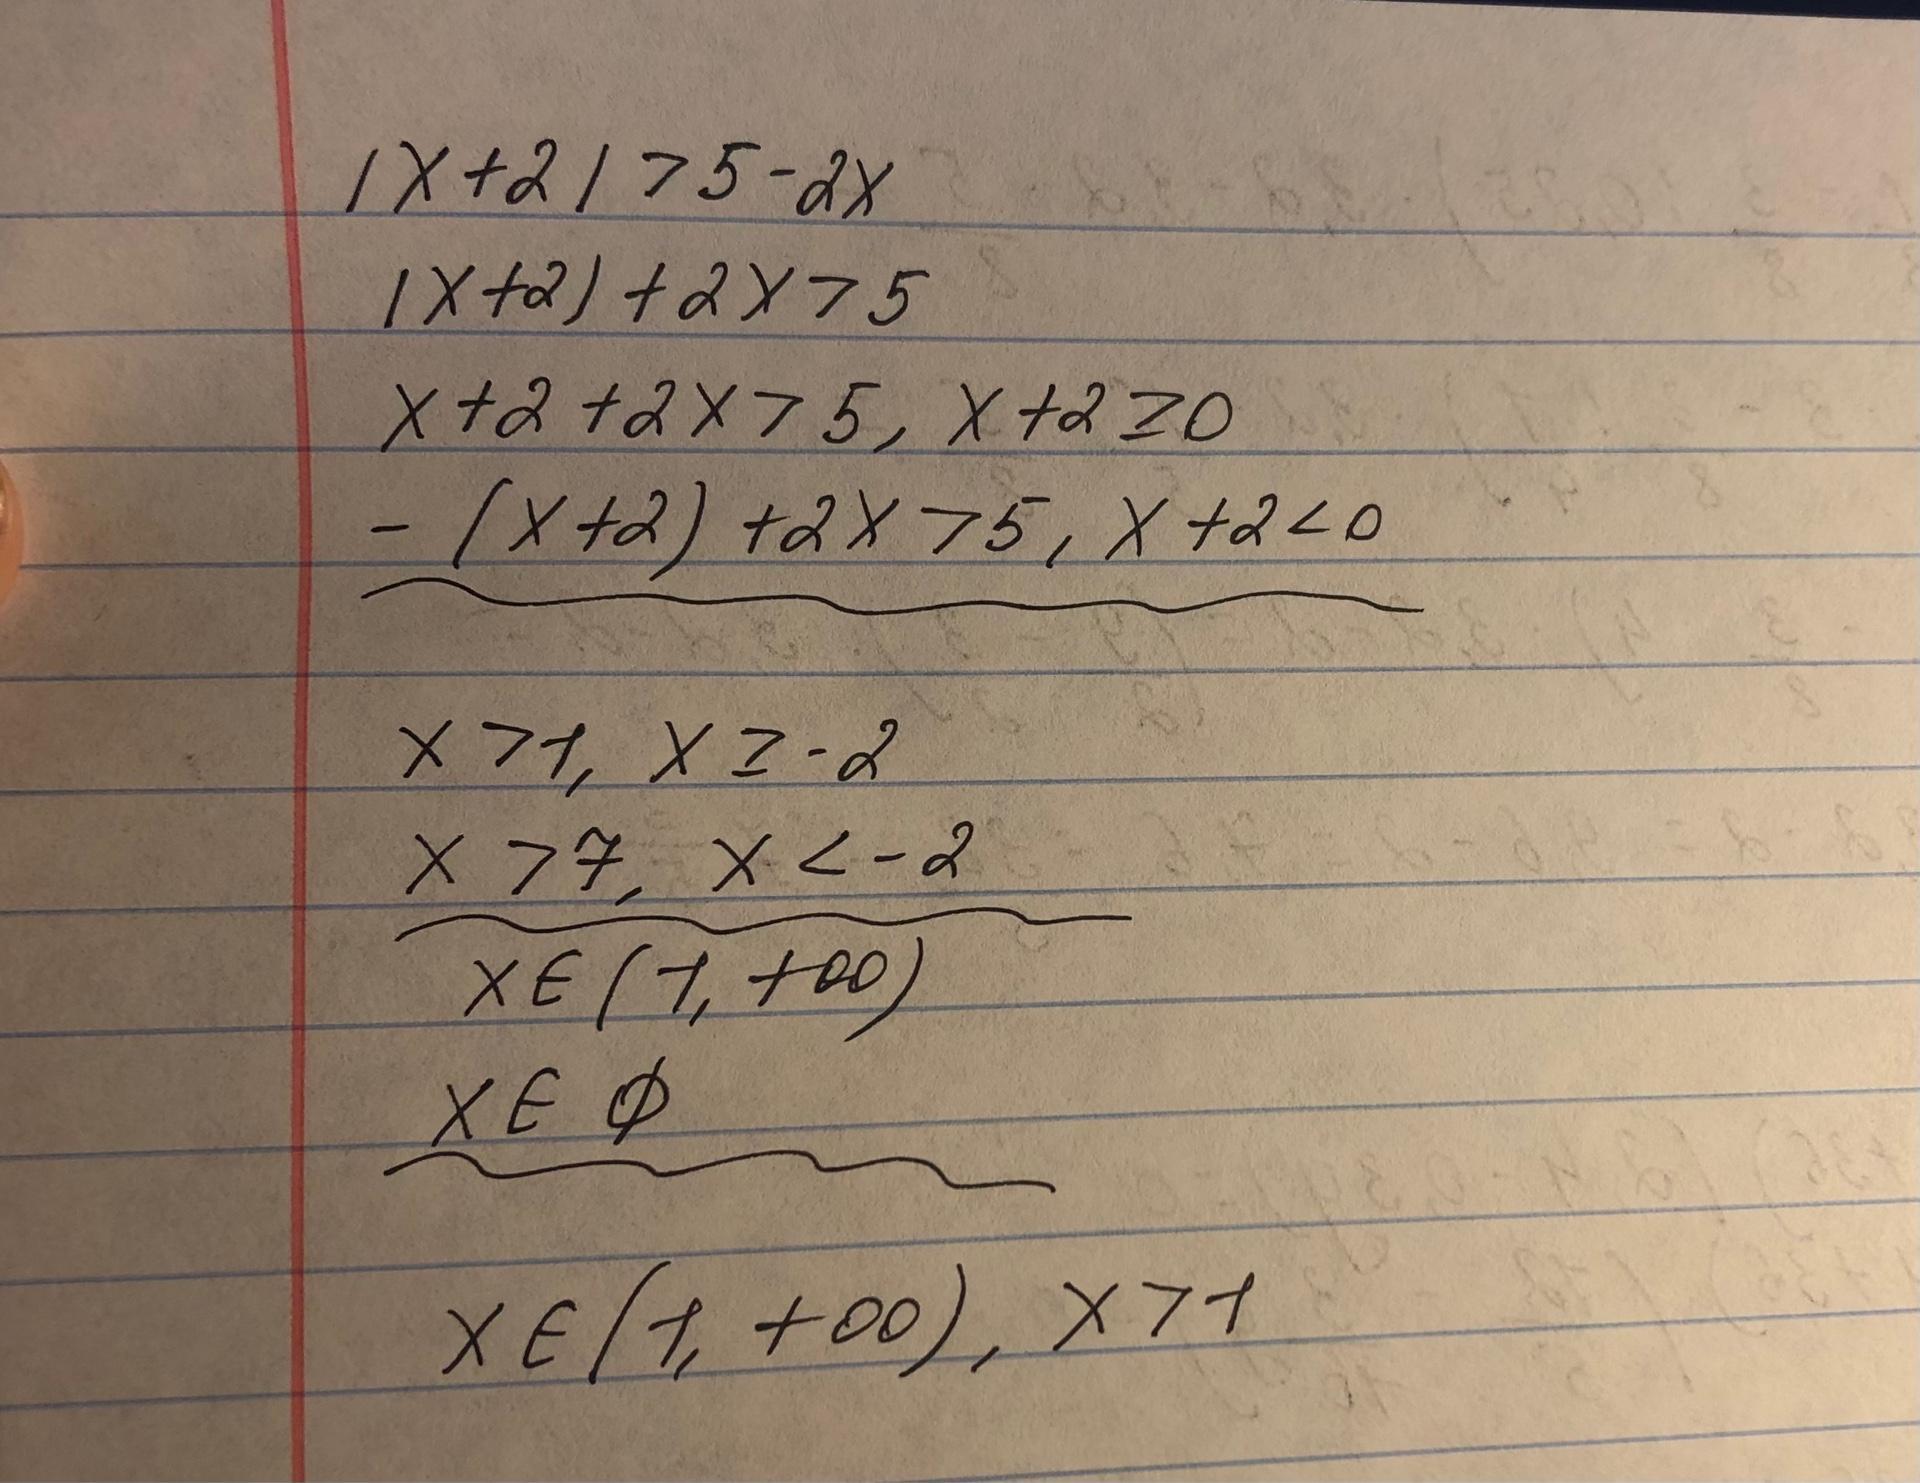 |x+2|>5-2x
|x+2|+2x>5
x+2+2x>5, x+2≥0
-(x+2)+2x>5, x+2<0
x>1, x≥-2
x>7, x<-2
x∈(1,+∞)
x∈∅
x∈(1,+∞), x>1